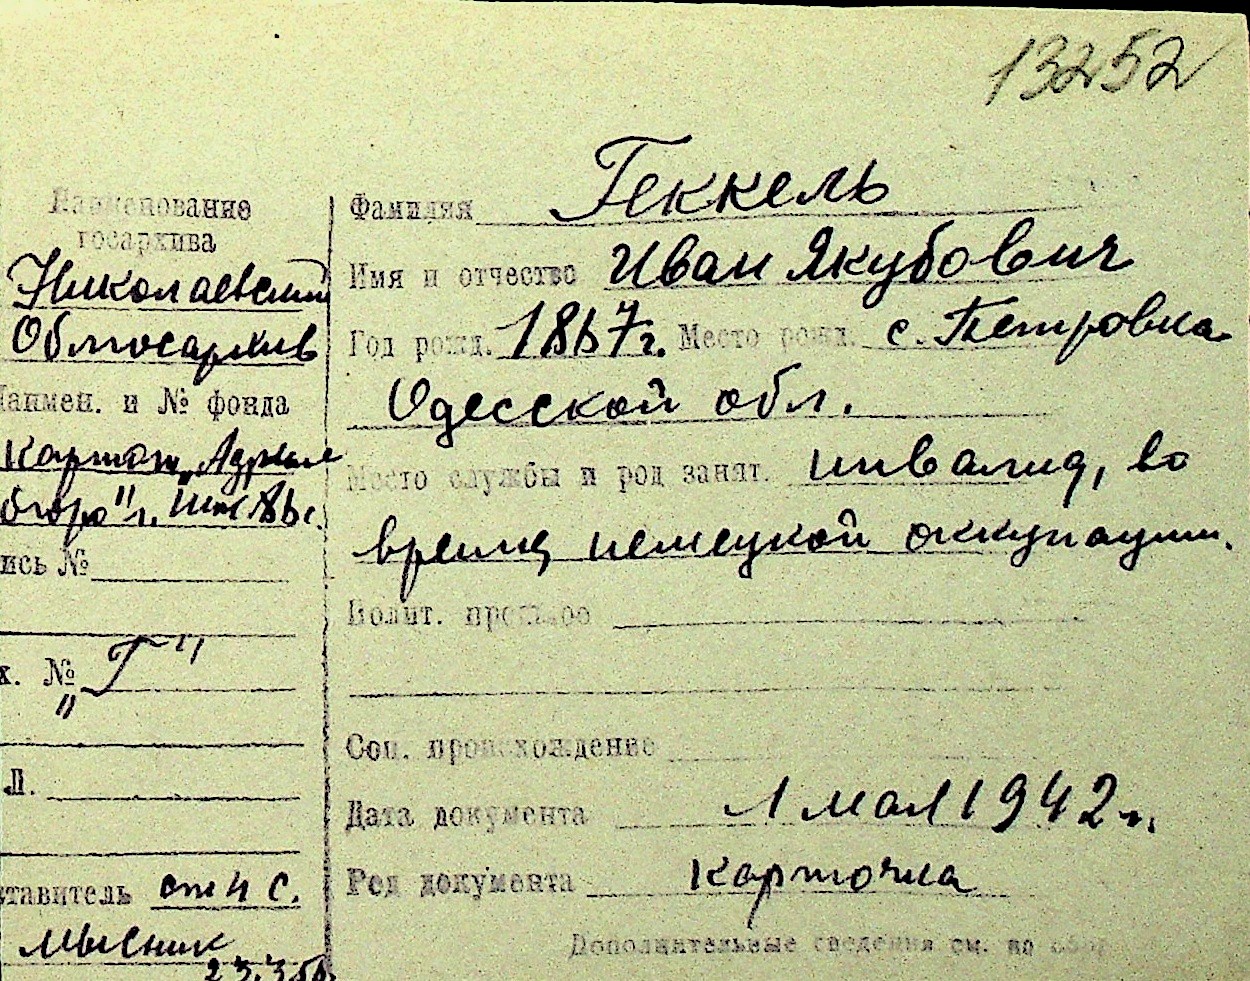 13252
Наименование
госархива
Николаевский
Облгосархив
Наимен. и № фонда
Картот. "Адресн
бюро" г.
ись №
х. № "Г"
Л.
ставитель отн с.
Мысник
Фамилия Геккель
Имя и отчество Иван Якубович
Год рожд. 1867г. Место рожд. с. Петровка
Одесской обл.
Место службы и род занят. инвалид, во
время немецкой оккупации.
Полит. прошлое
Соц. происхождение
Дата документа 1 мая 1942 г.
Род документа карточка
Дополнительные сведения см. на обор